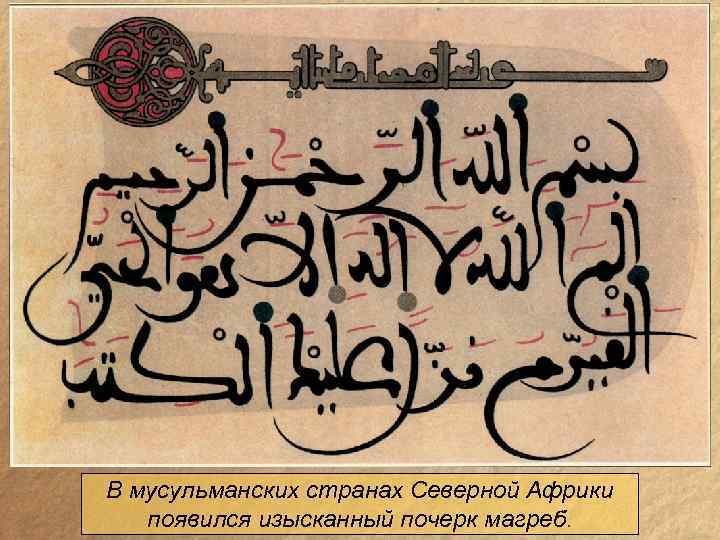 بسم الله الرحمن الرحيم
الم الله لا اله الا هو الحي
القيوم نزل عليك الكتب
В мусульманских странах Северной Африки
появился изысканный почерк магреб.